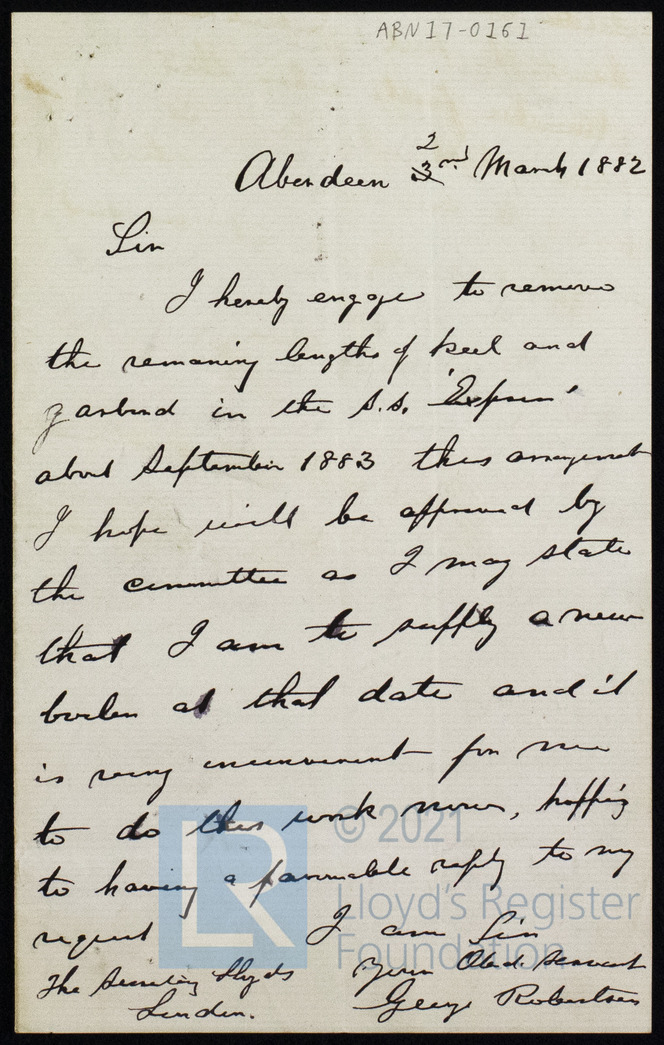 ABN17-0161
2
Aberdeen 3nd March 1882
Sir
I hereby engage to remove
the remaning lengths of keel and
garbord in the s.s. 'Express'
about September 1883 this arrangement
I hope will be approved by
the committee as I may state
that I am to supply a new
boiler at that date and it
is very inconvenient for me
to do this work now, hopping
to having a favourable reply to my
request I am Sir
Your Obed servant
The Secretary Lloyds
London.
George Robertson
© 2021
Lloyd's Register
Foundation
LR